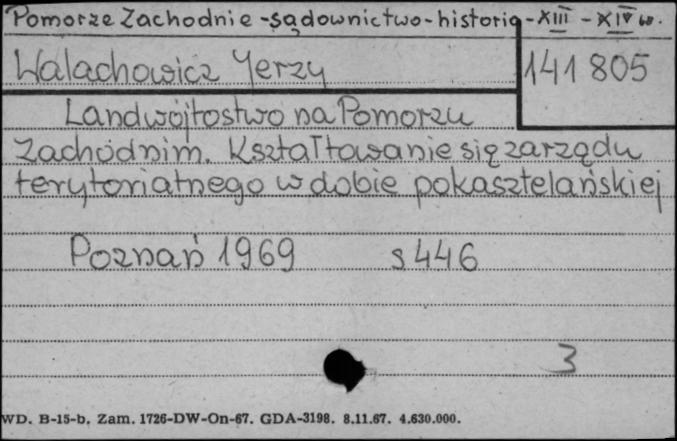 Pomorze Zachodnie - sądownictwo - historia - XIII - XIV w.
Walachowicz Jerzy
141 805
Landwójtostwo na Pomorzu
Zachodnim. Kształtowanie się zarządu
terytorialnego w dobie pokasztelańskiej
Poznań 1969 s 446
3
WD. B-15-b. Zam. 1726-DW-On-67. GDA-3198. 8.11.67. 4.630.000.